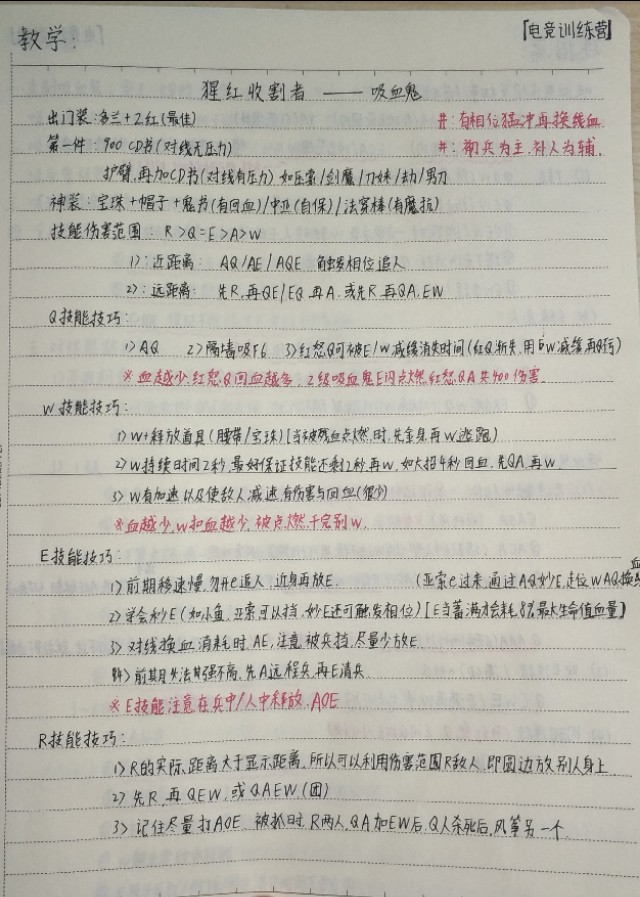 教学:
[电竞训练营]
猩红收割者 —— 吸血鬼
出门装:多兰+2红(最佳)
#:有相位猛冲再换线血
第一件:900 CD书(对线无压力)
#:刷兵为主,补人为辅.
护臂,再加CD书(对线有压力) 如压塞/剑魔/刀妹/劫/男刀
神装:宝珠+帽子+鬼书(有回血)/中亚(自保)/法穿棒(有魔抗)
技能伤害范围:R>Q=E>A>W
1>:近距离: AQ/AE/AQE 触发相位追人
2>:远距离: 先R,再QE/EQ 再A.或先R再QA,EW
Q技能技巧:
1>AQ 2>隔墙吸F6 3>红怒Q可被E/W减缓消失时间(红Q渐失,用 W减缓再Q巧)
※血越少,红怒Q回血越多,2级吸血鬼E闪点燃红怒QA共400伤害
W技能技巧:
1>W+释放道具(腰带/宝珠)[当被残血点燃时,先金身再W逃跑]
2>W持续时间2秒,最好保证技能还剩2秒再W.如大招4秒回血,先QA,再W
3>W有加速以及使敌人减速有伤害与回血(很少)
※血越少,W扣血越少,被点燃千完别W.
E技能技巧:
1>前期移速慢,勿开e追人,近身再放E. (亚索e过来,通过AQ妙E,走位WAQ换血
2>学会秒E(如小鱼,亚索可以挡,妙E还可触发相位)[E当蓄满才会耗8%最大生命值血量]
3>对线换血消耗时,AE,注意被兵挡,尽量少放E
4>前期 法强不高,先A远程兵,再E清兵
※E技能注意在兵中/人中释放,AOE
R技能技巧:
1>R的实际距离大于显示距离,所以可以利用伤害范围R敌人,即圆边放别人身上
2>先R,再QEW,或QAEW(团)
3>记住尽量打AOE 被抓时,R两人,QA加EW后,Q人杀死后,风筝另一个